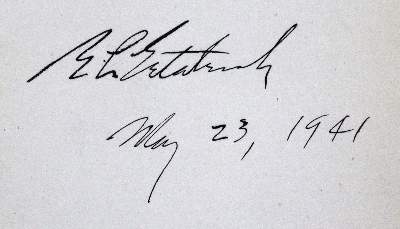 E L Estabrook
May 23, 1941